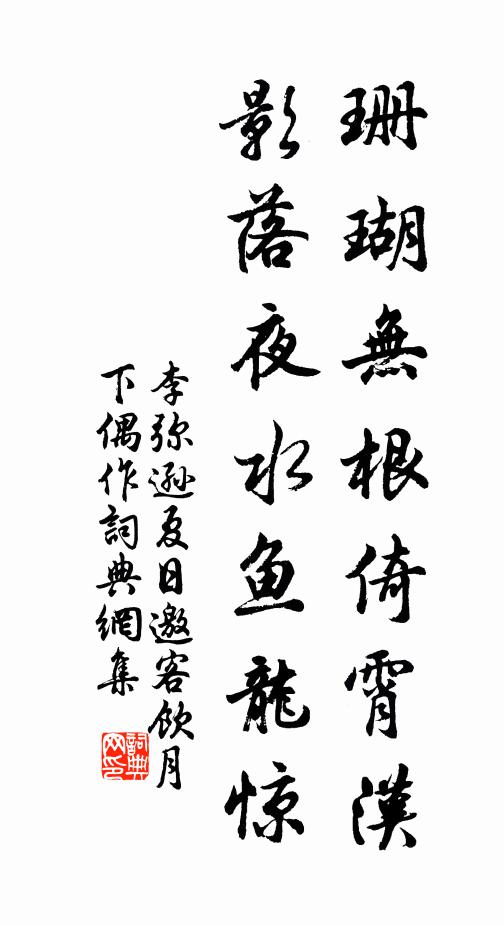 珊瑚無根倚霄漢
影落夜水鱼龍惊
李弥遜夏日邀客饮月
下偶作詞典網集
詞典
网印